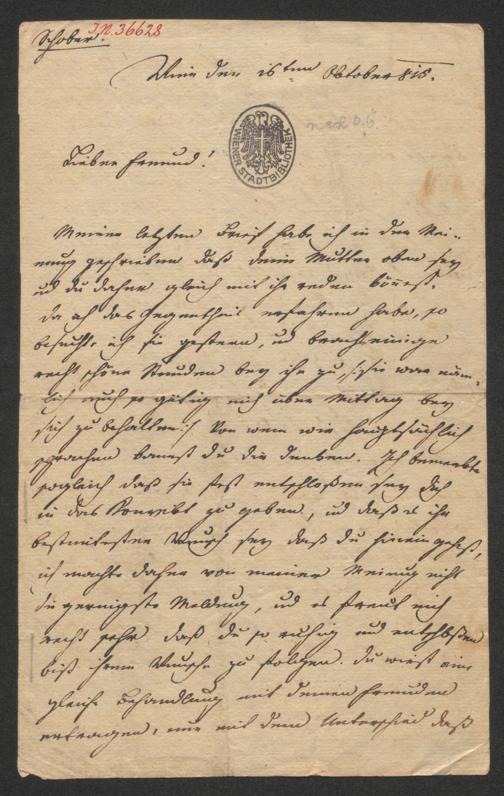 Schober. I.N. 36628
Wien den 16ten Oktober 815.
nach O. E.
WIENER STADTBIBLIOTHEK
Lieber Freund!
Meinen letzten Brief habe ich in der Mei-
nung geschrieben daß deine Mutter oben sey
und du daher gleich mit ihr reden könnest.
Da ich das Gegentheil erfahren habe, so
besuchte ich sie gestern, und brachte einige
recht schöne Stunden bey ihr zu, /: sie war näm-
lich auch so gütig mich über Mittag bey
sich zu behalten :/ Von wem wir hauptsächlich
sprachen kannst du dir denken. Ich bemerkte
sogleich daß sie fest entschloßen sey dich
in das Konvikt zu geben, und daß es ihr
bestimtester Wunsch sey daß du hinein gehest,
ich machte daher von meiner Meinung nicht
die geringste Meldung, und es freut mich
recht sehr daß du so ruhig und entschloßen
bist ihrem Wunsche zu folgen. Du wirst eine
gleiche Behandlung mit deinen Freunden
ertragen, nur mit dem Unterschied daß